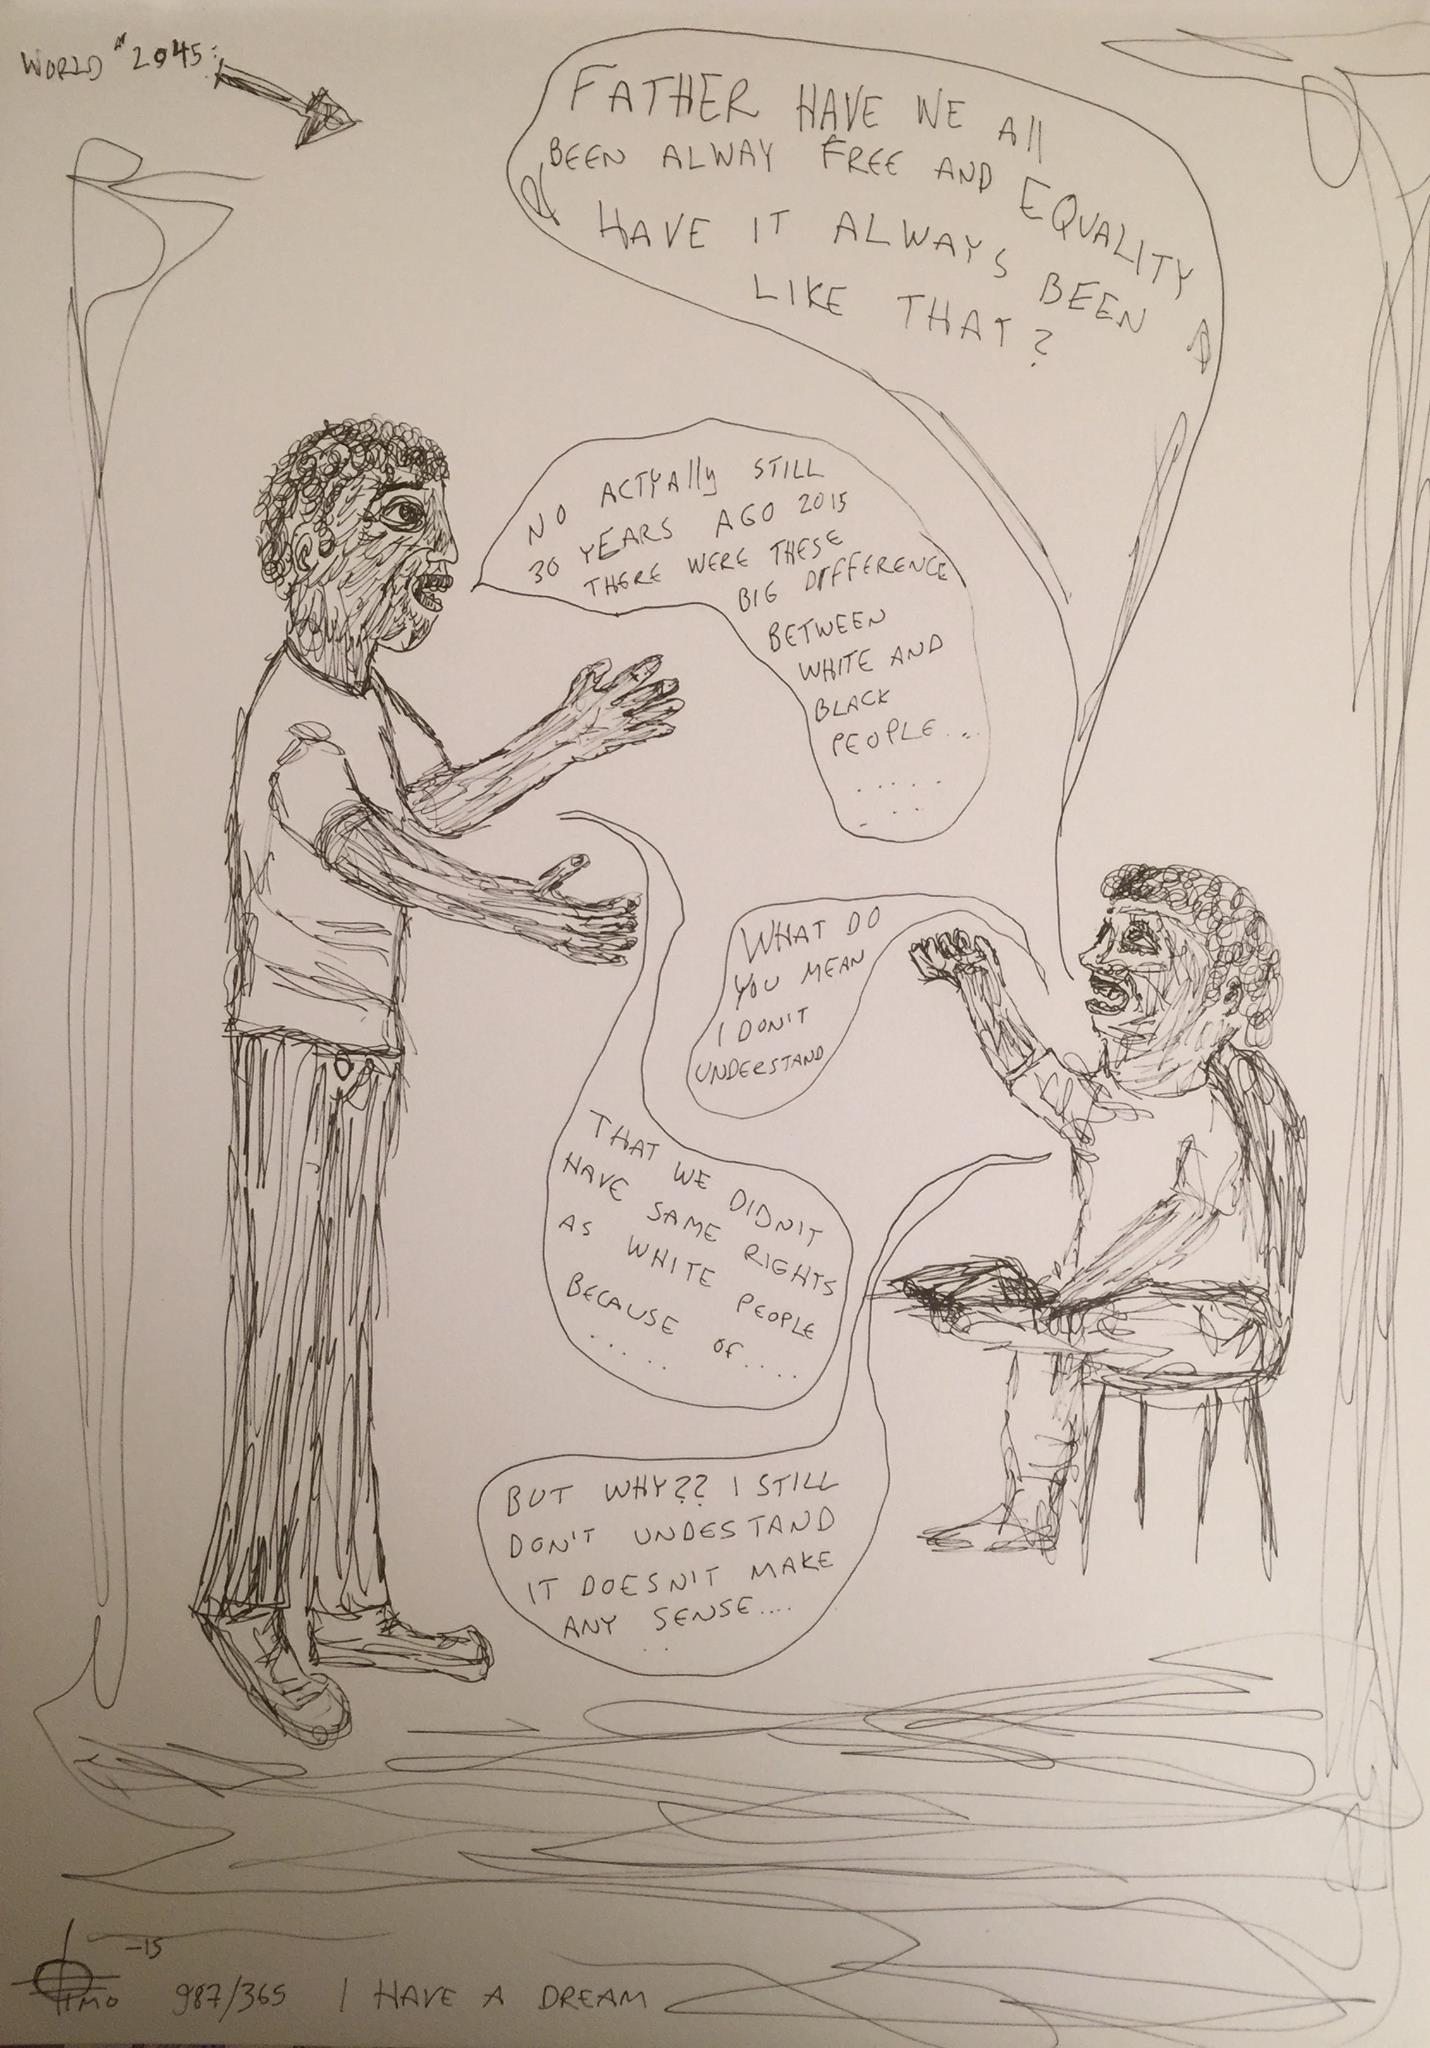 WORLD "2045:
FATHER HAVE WE All
BEEN ALWAY FREE AND EQUALITY
HAVE IT ALWAYS BEEN
LIKE THAT?
NO ACTYAlly STILL
30 YEARS AGO 2015
THERE WERE THESE
BIG DIFFERENCE
BETWEEN
WHITE AND
BLACK
PEOPLE....
.....
...
WHAT DO
YOU MEAN
I DON'T
UNDERSTAND
THAT WE DIDN'T
HAVE SAME RIGHTS
AS WHITE PEOPLE
BECAUSE Of....
.....
BUT WHY?? I STILL
DON'T UNDESTAND
IT DOESN'T MAKE
ANY SENSE....
..
-15
TIMO 987/365 I HAVE A DREAM